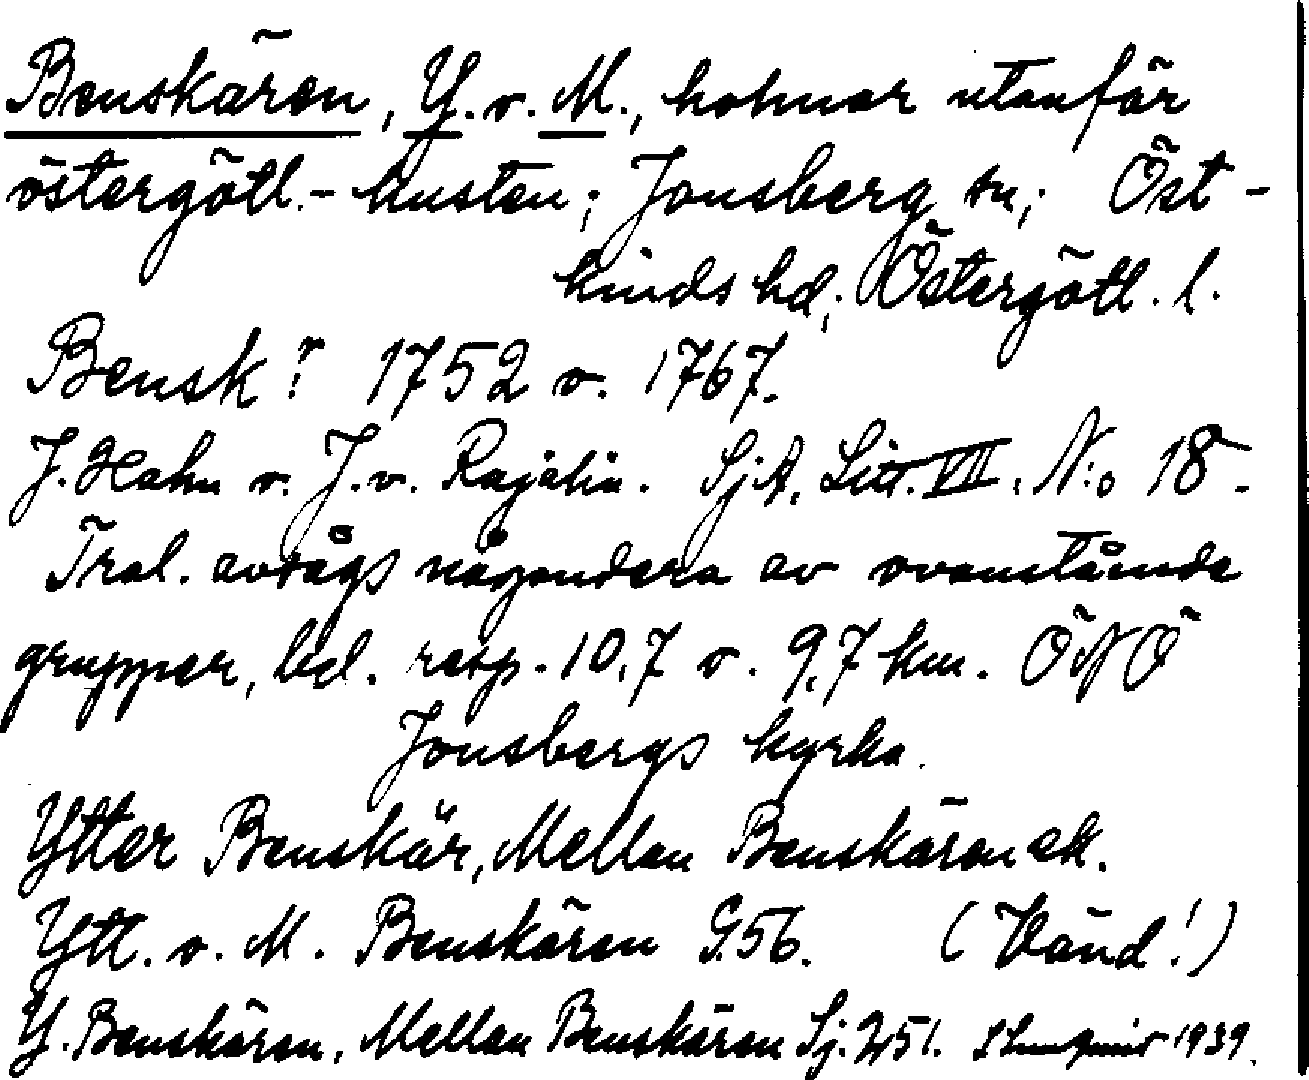 Benskären, Y. o. M., holmar utanför
östergötl.- kusten; Jonsberg sn; Öst-
kinds hd; Östergötl. l.
Bensk? 1752 o. 1767.
J. Hahn o. J. v. Rajalin. SjA. Litt. VII. N:o 18-
Trol. avsågs någondera av ovanstående
grupper, bel. resp. 10,7 o. 9,7 km. ÖNÖ
Jonsbergs kyrka.
Ytter Benskär, Mellan Benskären ek.
Ytt. o. M. Benskären G56. (Vänd!)
Y. Benskären, Mellan Benskären Sj. 251. 1939.